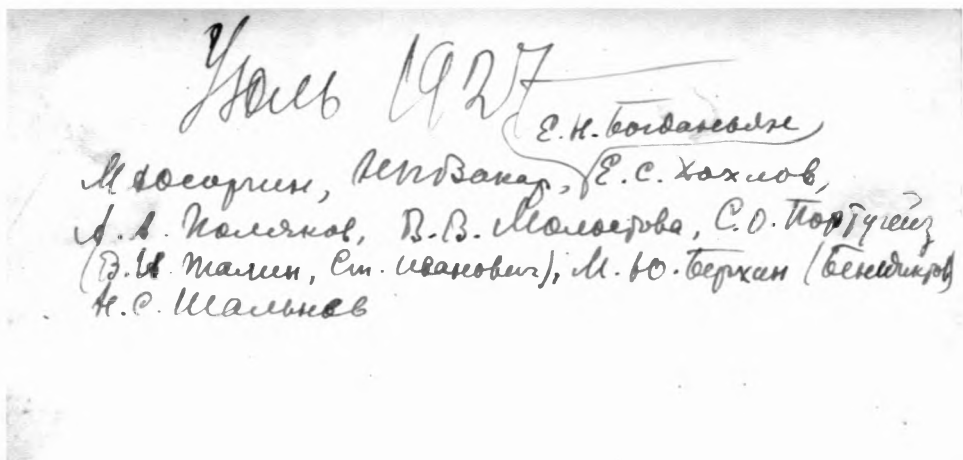 Июль 1927
Е.Н. Богданьян
М Осоргин, НПВакар, Е.С. Хохлов,
А.А. Поляков, В.В. Молостова, С.О. Португейз
(В.И Талин, Ст. Иванович), М.Ю. Берхин (Бенедиктов)
Н.С. Шальнев